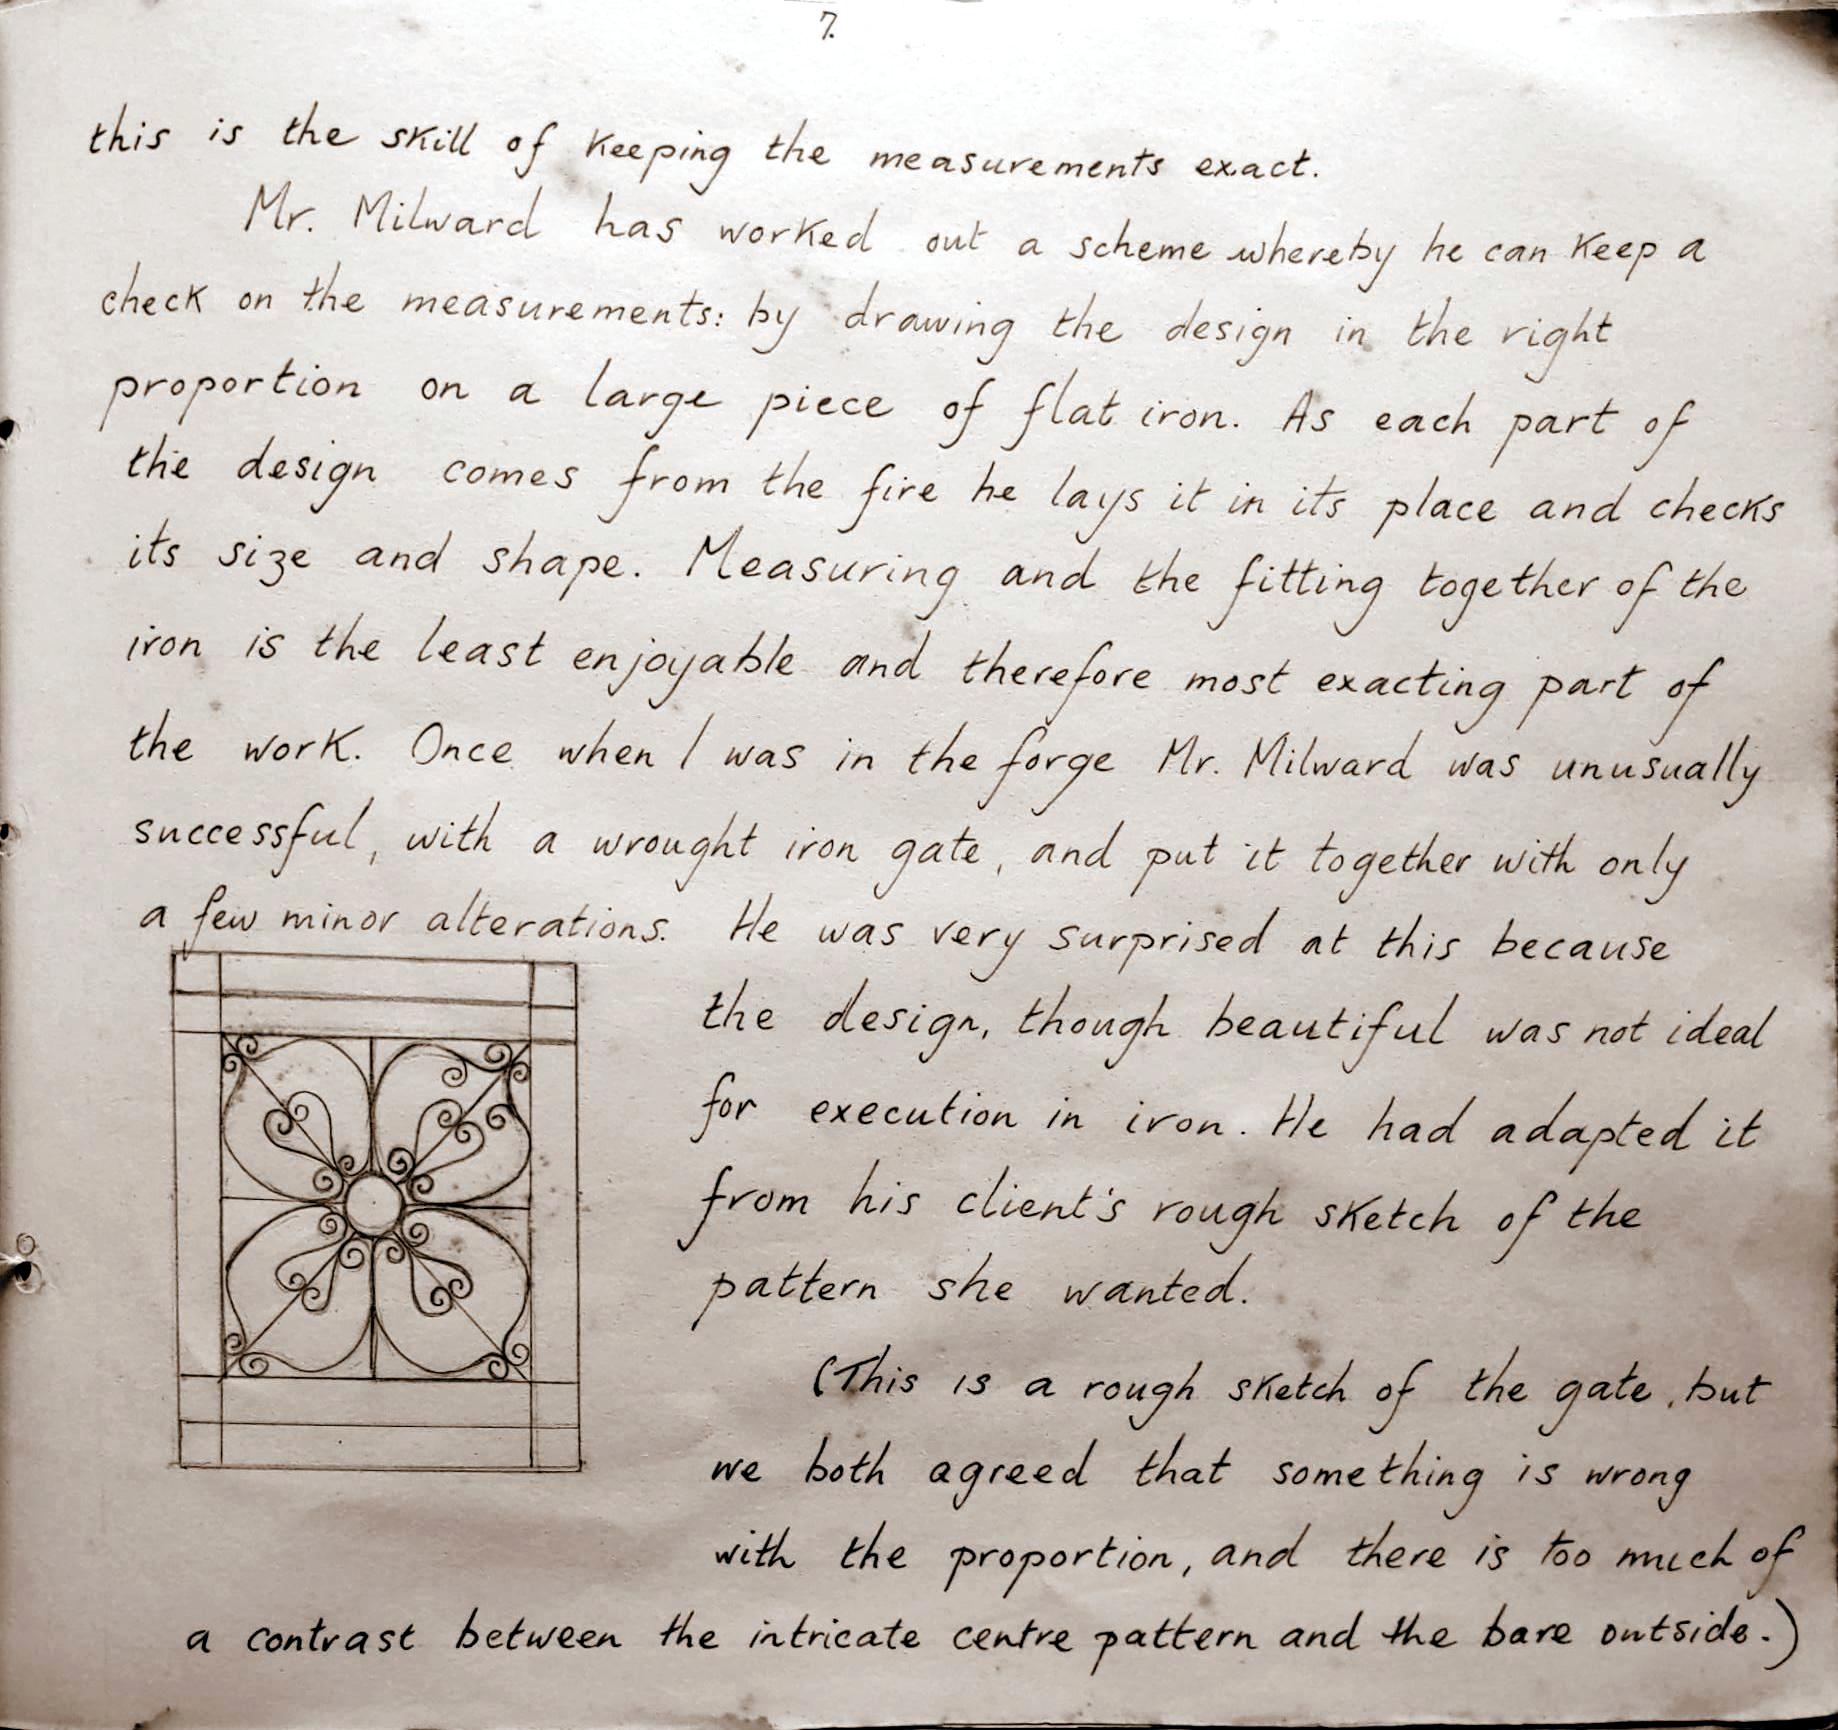 7.
this is the skill of keeping the measurements exact.
Mr. Milward has worked out a scheme whereby he can keep a
check on the measurements: by drawing the design in the right
proportion on a large piece of flat iron. As each part of
the design comes from the fire he lays it in its place and checks
its size and shape. Measuring and the fitting together of the
iron is the least enjoyable and therefore most exacting part of
the work. Once when I was in the forge Mr. Milward was unusually
successful, with a wrought iron gate, and put it together with only
a few minor alterations. He was very surprised at this because
the design, though beautiful was not ideal
for execution in iron. He had adapted it
from his client's rough sketch of the
pattern she wanted.
(This is a rough sketch of the gate, but
we both agreed that something is wrong
with the proportion, and there is too much of
a contrast between the intricate centre pattern and the bare outside.)